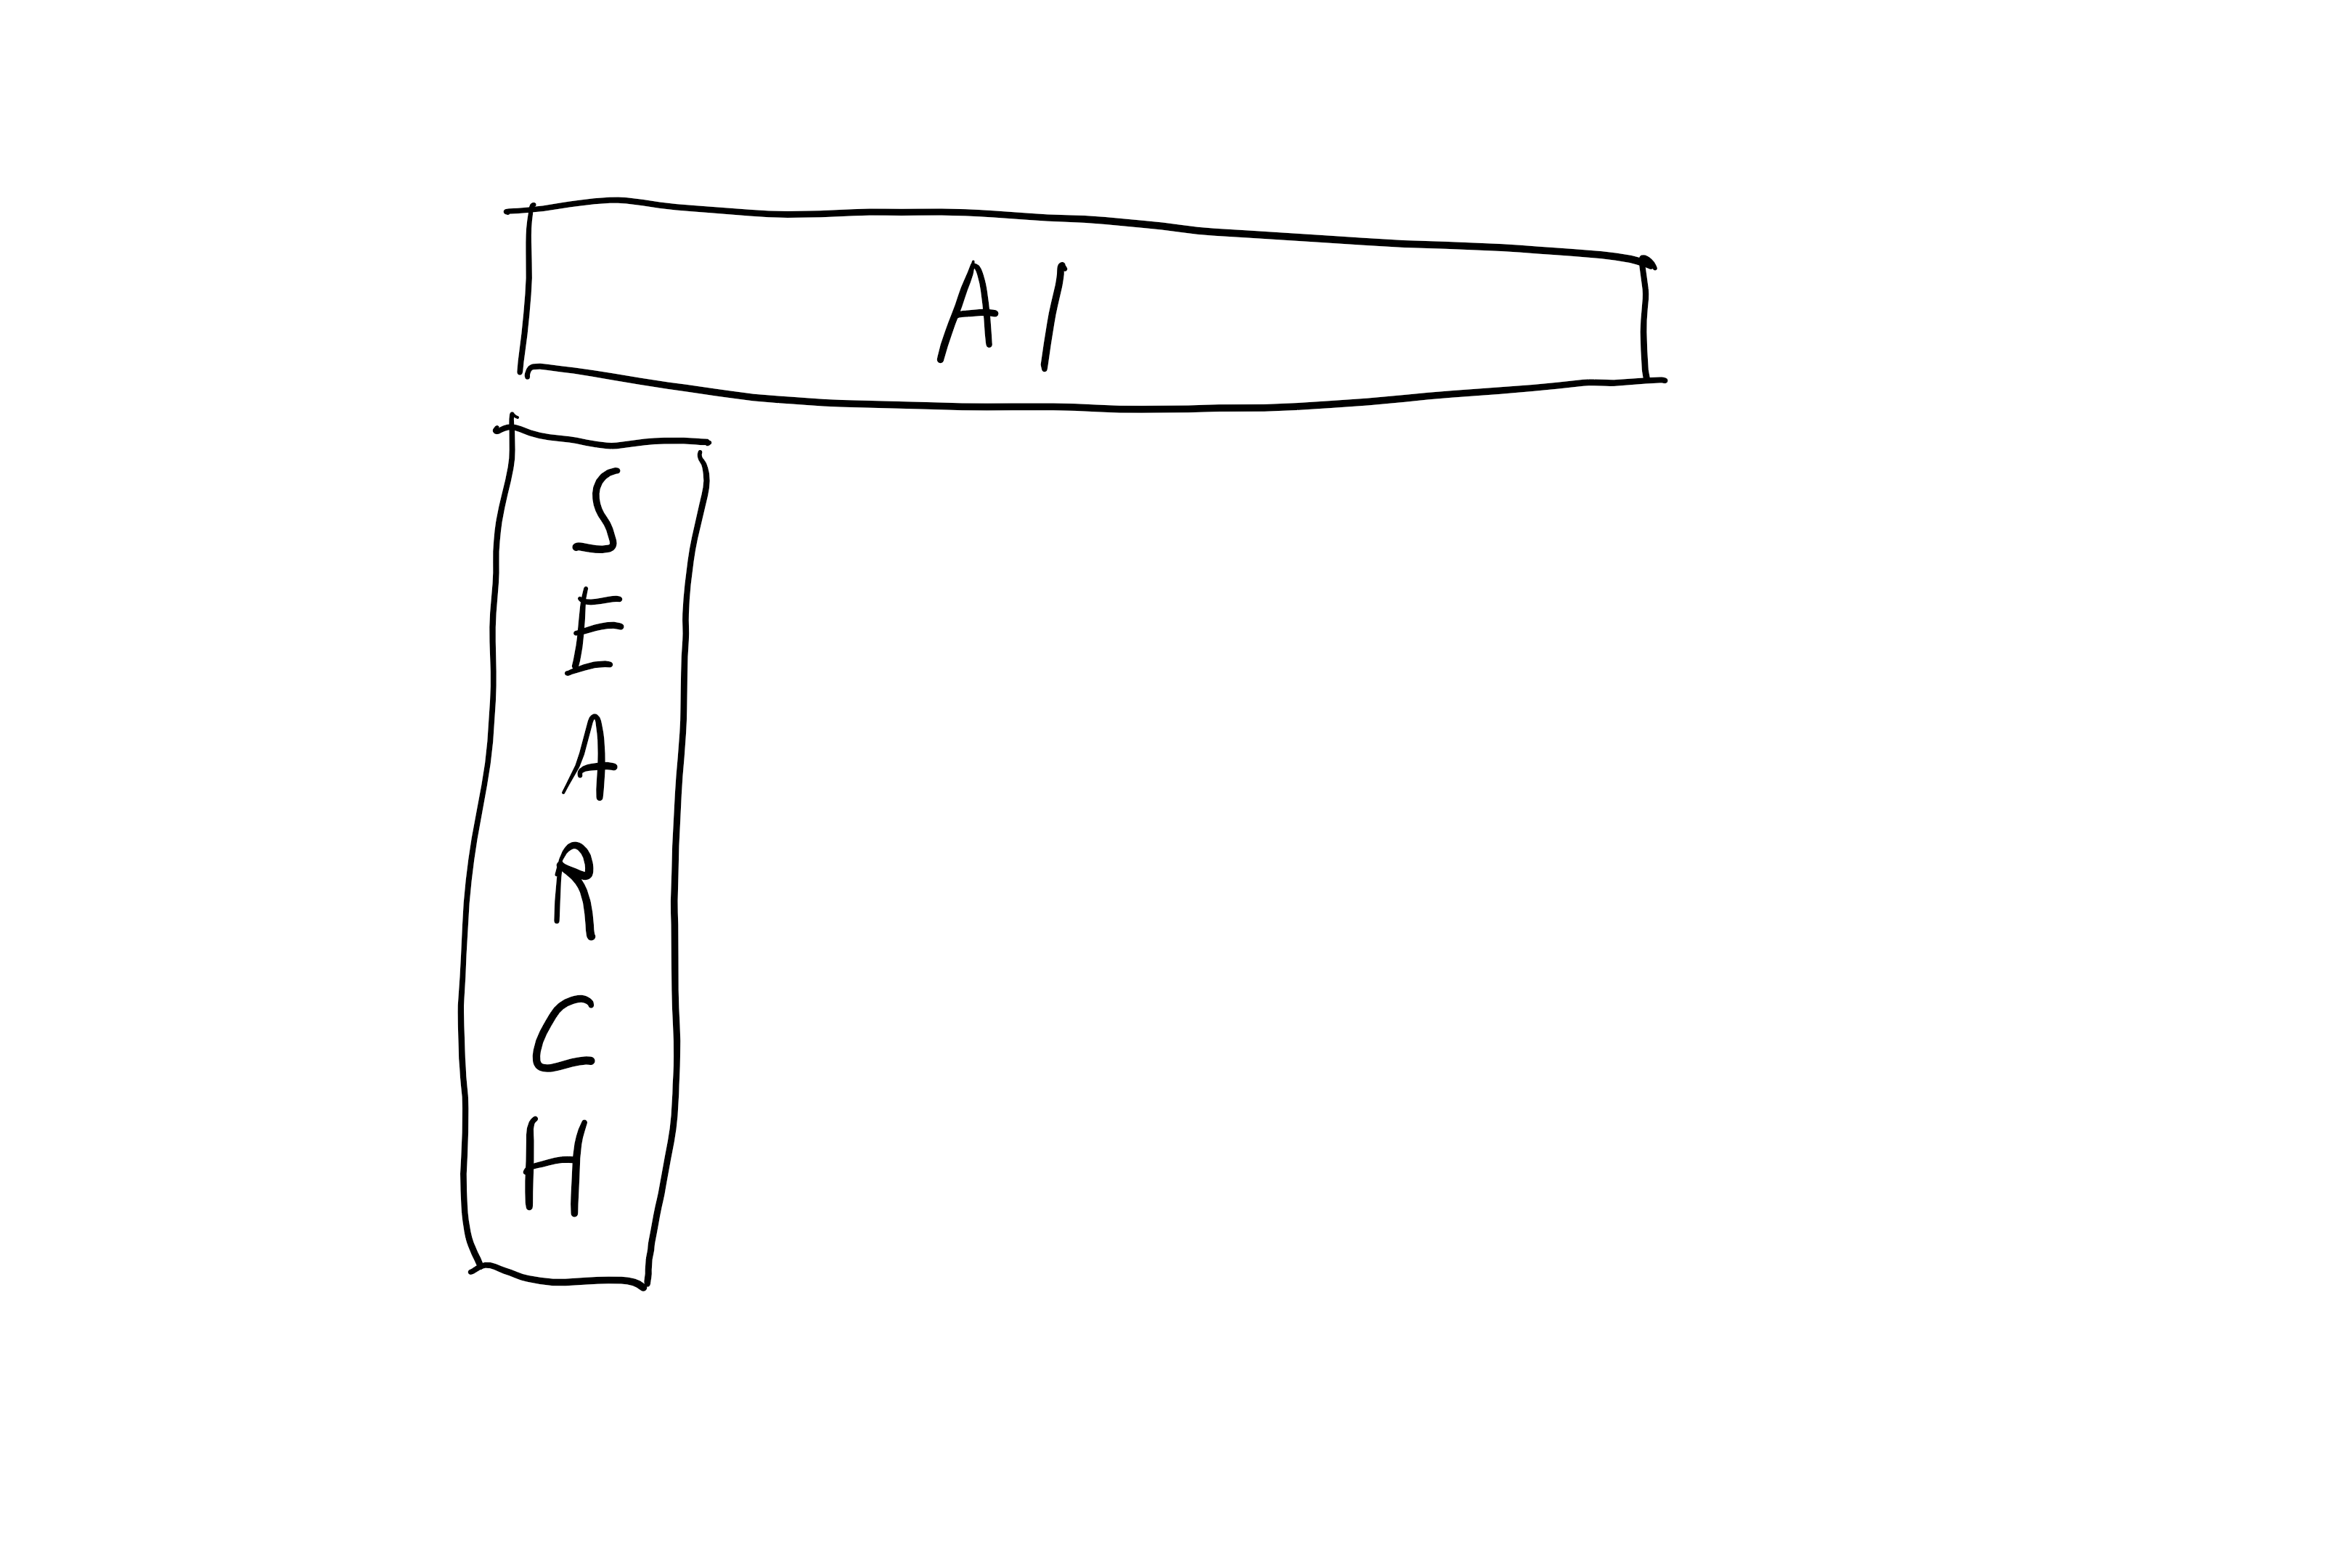 AI
S
E
A
R
C
H